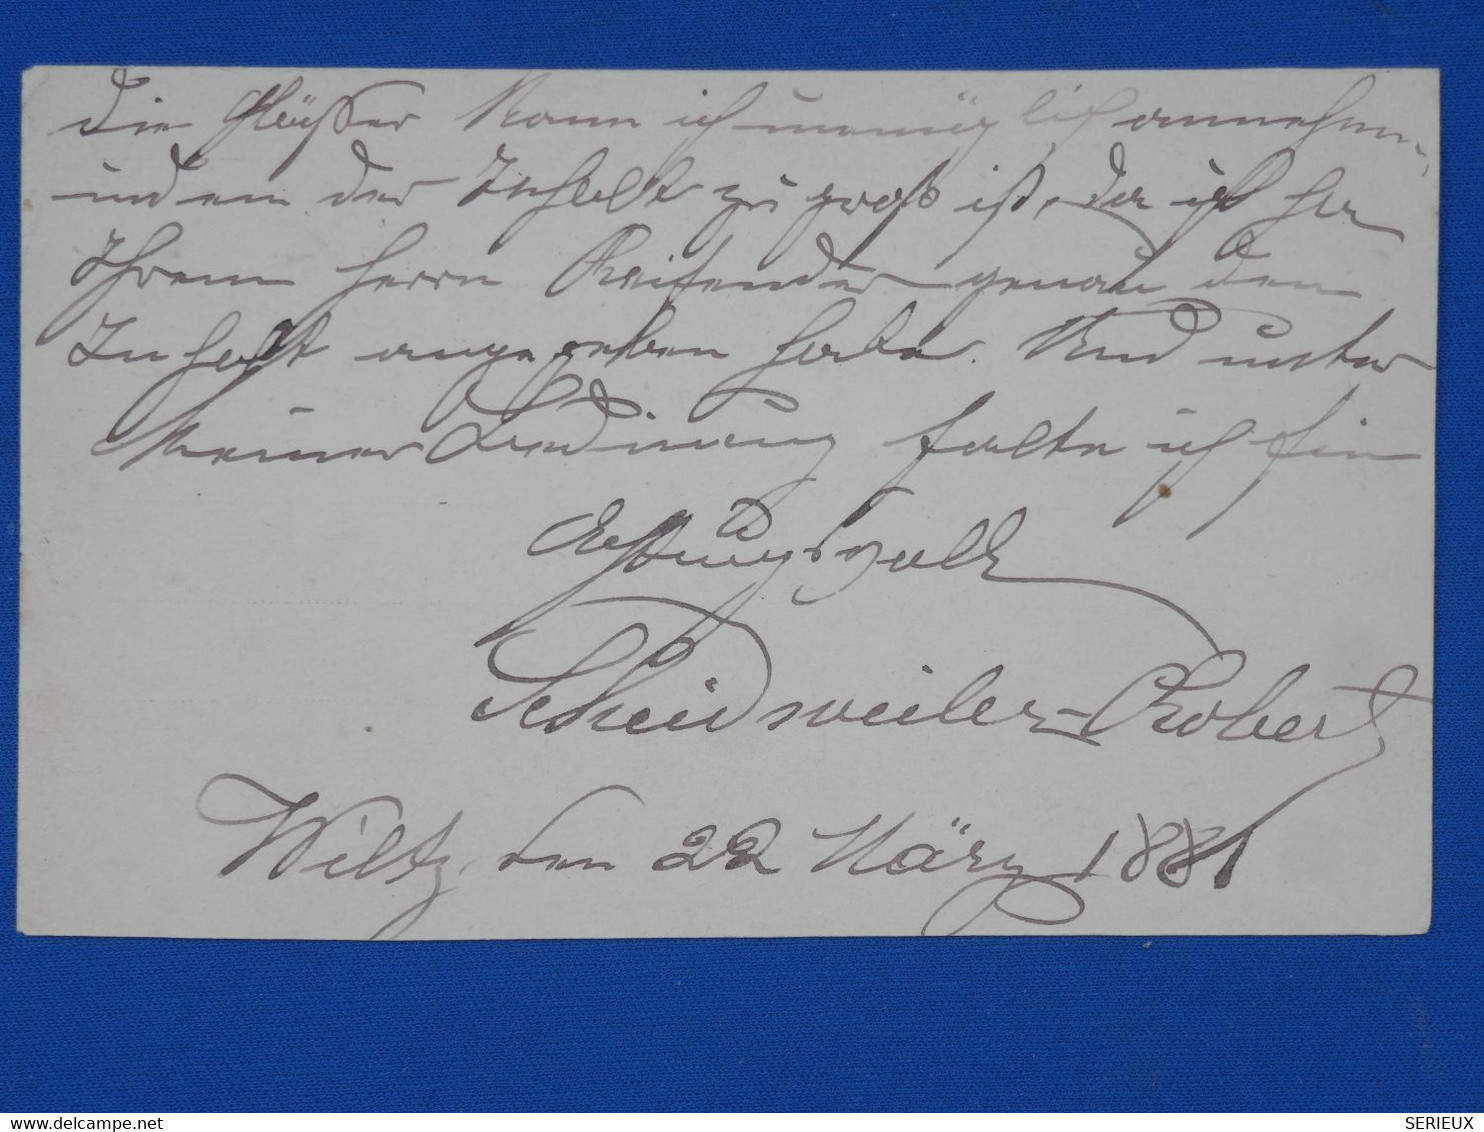 Die Gläser kann ich unmöglich annehmen,
indem der Inhalt zu groß ist, da ich ha
Ihrem Herrn Reisender genau den
Inhalt angegeben habe. Und unter
keiner Bedinung falte ich hin
Achtungsvoll
Scheidweiler-Robert
Wiltz, den 22 März 1881
SERIEUX
www.delcampe.net